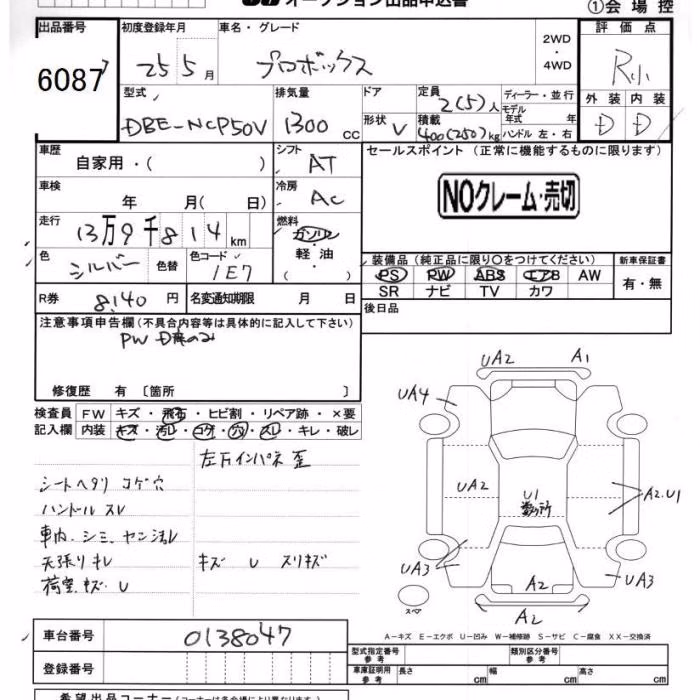 オークション出品申込書
①会場控
出品番号
6087
初度登録年月
25 5月
車名・グレード
プロボックス
2WD
・
4WD
評価点
R小
外装 内装
D D
型式
DBE-NCP50V
排気量
1300 CC
ドア
形状 V
定員
2(5)人
積載
400(250)kg
ディーラー・並行
モデル
年式 年
ハンドル 左・右
車歴
自家用・( )
シフト
AT
セールスポイント (正常に機能するものに限ります)
NOクレーム・売切
車検
年 月( 日)
冷房
AC
走行
13万9千814km
燃料
ガソリン
・
軽油
( )
色
シルバー
色替
色コード
1E7
装備品(純正品に限り○をつけてください)
PS PW ABS エアB AW
SR ナビ TV カワ
新車保証書
有・無
R券
8,140 円
名変通知期限 月 日
後日品
注意事項申告欄(不具合内容等は具体的に記入して下さい)
修復歴 有 〔箇所 〕
検査員
記入欄
FW キズ・飛石・ヒビ割・リペア跡・×要
内装 キズ・汚レ・コゲ・穴・スレ・キレ・破レ
左Fインパネ歪
シートヘタリ コゲ穴
ハンドル スレ
車内、シミ、ヤニ汚レ
天張りキレ
荷室キズ U
キズ U スリキズ
UA2 A1
UA4
UA2
U1
数ヶ所
A2.U1
UA3
A2
UA3
スペア
A2
A−キズ E−エクボ U−凹み W−補修跡 S−サビ C−腐食 XX−交換済
車台番号
0138047
登録番号
型式指定番号
参考
類別区分番号
参考
車庫証明用
参考
長さ cm
幅 cm
高さ cm
希望出品コーナー(コーナーは各会場により異なります)